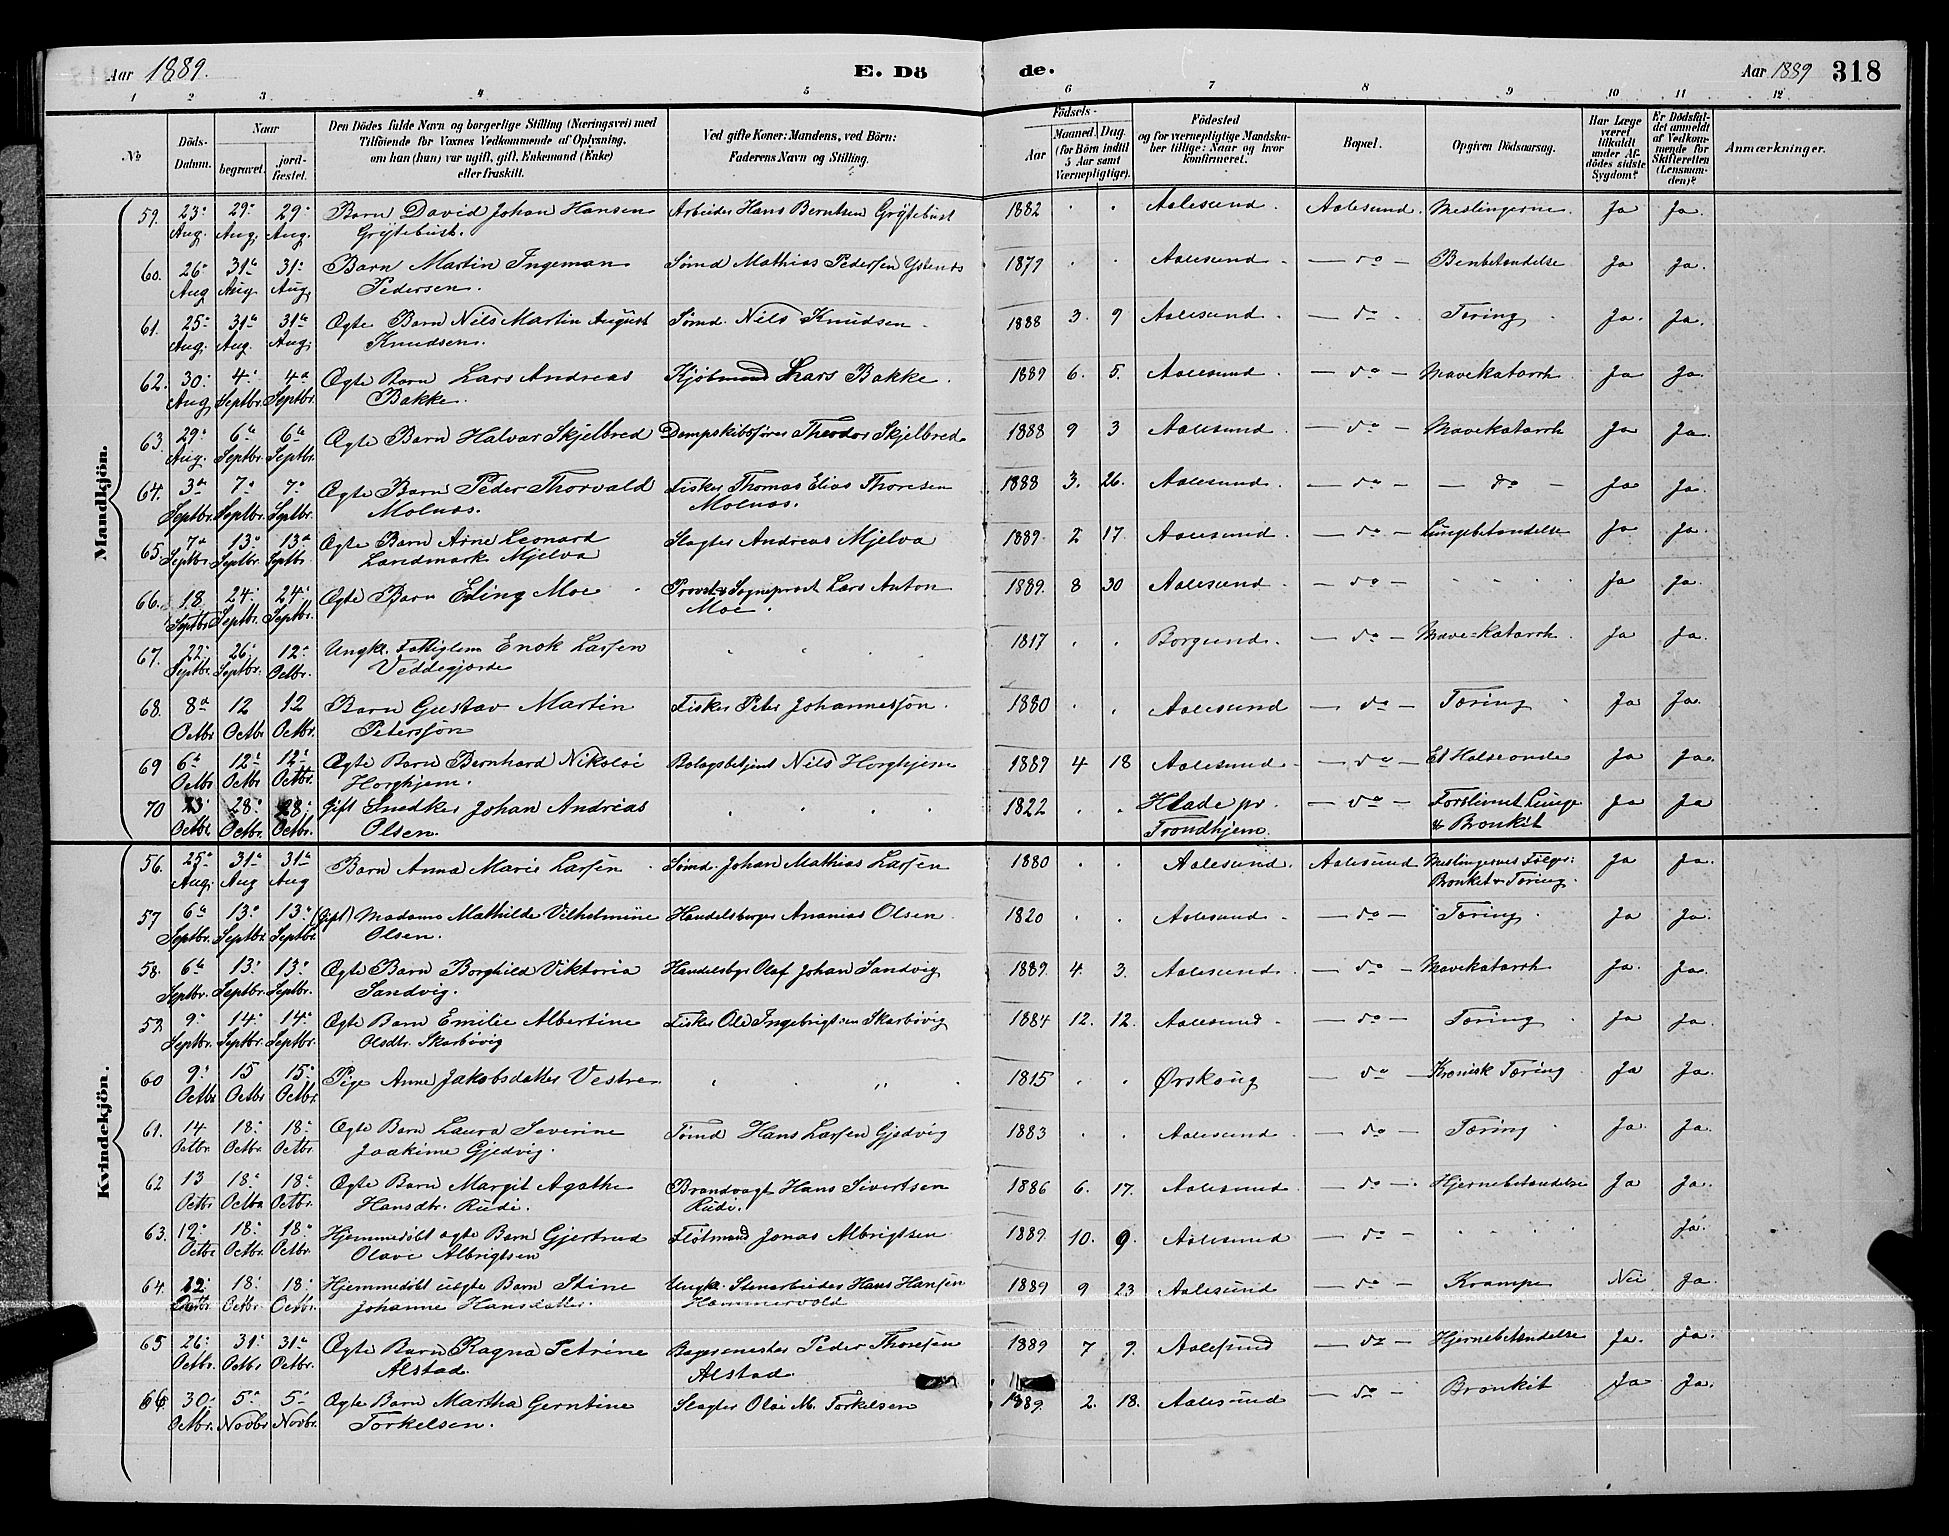 Aar 1889. E. Dö de. Aar 1889 318
1 2 3. 4 5 6 7 8 9 10 11 12
No
Döds-Datum.
Naar
begravet.
jord-fæstet.
Den Dödes fulde Navn og borgerlige Stilling (Næringsvei) med
Tilföiende for Voxnes Vedkommende af Oplysning,
om han (hun) var ugift, gift, Enkemand (Enke)
eller fraskilt.
Ved gifte Koner: Mandens, ved Börn:
Faderens Navn og Stilling.
Födsels-
Aar
Maaned. Dag.
(for Börn indtil
5 Aar samt
Værnepligtige).
Födested
og for værnepligtige Mandska-
ber tillige: Naar og hvor
konfirmeret.
Bopæl.
Opgiven Dödsaarsag.
Har Læge
været
tilkaldt
under Af-
dödes sidste
Sygdom?
Er Dödsfal-
det anmeldt
af Vedkom-
mende for
Skifteretten
(Lensman-
den)?
Anmærkninger.
Mandkjön.
59. 23. Aug. 29. Aug. 29. Aug. Barn David Johan Hansen Grÿtebust. Arbeider Hans Berntsen Grÿtebust 1882 Aalesund. Aalesund. Meslingerne. Ja Ja.
60. 26. Aug 31. Aug 31. Aug. Barn Martin Ingeman Pedersen. Sømd Mathias Pedersen 1879 Aalesund. — do — Benbetændelse Ja Ja.
61. 25. Aug. 31. Aug. 31. Aug. Ægte Barn Nils Martin August Knudsen. Sømd. Nils Knudsen 1888 3. 9 Aalesund. — do. Tæring Ja. Ja.
62. 30. Aug 4. Septbr. 4. Septbr. Ægte Barn Lars Andreas Bakke. Kjøbmand Lars Bakke. 1889 6. 5. Aalesund. — do — Mavekatarrh Ja Ja.
63. 29. Aug. 6. Septbr. 6. Septbr. Ægte Barn Halvar Skjelbred Dampskibsfører Theodor Skjelbred. 1888 9 3 Aalesund. — do — Mavekatarrh Ja Ja.
64. 3. Septbr. 7. Septbr. 7. Septbr. Ægte Barn Peder Thorvald Molnæs. Fisker Thomas Elias Thoresen Molnæs. 1888 3. 26. Aalesund. — do — — do — Ja Ja.
65. 7. Septbr. 13. Septbr. 13. Septbr. Ægte Barn Arne Leonard Landmark Mjelva Slagter Andreas Mjelva 1889. 2 17. Aalesund. — do — Lungebetændelse Ja Ja.
66. 18. Septbr. 24. Septbr. 24. Septbr. Ægte Barn Erling Moe Provst & Sogneprest Lars Anton Moe. 1889. 8 30 Aalesund — do — Ja Ja.
67. 22. Septbr. 26. Septbr. 12. Octbr. Ungkl. Fattiglem Enok Larsen Veddegjerde 1817 Borgund. — do — Mave-Katarrh. Ja Ja.
68. 8. Octbr 12 Octbr 12 Octbr. Barn Gustav Martin Petersson Fisker Peter Johannesson. 1880 Aalesund — do — Tæring Ja Ja.
69 6. Octbr 12. Octbr 12. Octbr. Ægte Barn Bernhard Nikolai Horghjem. Bolagsbetjent Nils Horghjem 1889 4 18 Aalesund — do — Et Halsonde Ja Ja
70 23. Octbr. 28. Octbr 28. Octbr. Gift Snedker Johan Andreas Olsen. 1822 Hlade pr. Trondhjem. — do — Forstenet Lunge & Bronkit Ja Ja
Kvindekjön.
56. 25. Aug. 31. Aug 31. Aug Barn Anna Marie Larsen Sømd. Johan Mathias Larsen 1880 Aalesund. Aalesund Meslingernes Følger: Bronkit & Tæring. Ja Ja.
57 6. Septbr. 13. Septbr 13. Septbr (Gift) Madame Mathilde Vilhelmine Olsen. Handelsborger Ananias Olsen 1820 Aalesund — do — Tæring. Ja Ja.
58. 6. Septbr. 13. Septbr. 13. Septbr. Ægte Barn Borghild Viktoria Sandvig. Handelsbgr Olaf Johan Sandvig 1889. 4. 3. Aalesund. — do — Mavekatarrh Ja. Ja.
59. 9. Septbr. 14. Septbr. 14. Septbr. Ægte Barn Emilie Albertine Olsdtr. Skarbövig Fisker Ole Ingebrigtsen Skarbövig 1884 12. 12. Aalesund. — do — Tæring Ja Ja.
60 9. Octbr 15 Octbr 15. Octbr. Pige Anne Jakobsdatter Vestre 1815 Ørskoug — do — Kronisk Tæring Ja Ja.
61. 14 Octbr. 18. Octbr. 18. Octbr. Ægte Barn Laura Severine Joakime Gjedvig. Sømd Hans Larsen Gjedvig 1883 Aalesund — do — Tæring Ja. Ja.
62 13 Octbr 18. Octbr 18. Octbr. Ægte Barn Margit Agathe Hansdtr. Rüde. Brandvagt Hans Sivertsen Rüde. 1886 6. 17. Aalesund — do — Hjernebetændelse Ja Ja.
63. 12. Octbr 18. Octbr. 18. Octbr. Hjemmedöbt ægte Barn Gjertrud Olave Albrigtsen Fløtmand Jonas Albrigtsen 1889. 10. 9. Aalesund — do — Ja.
64. 12. Octbr. 18. Octbr. 18. Octbr. Hjemmedöbt uægte Barn Stine Johanne Hansdatter. Ungkl. Stenarbeider Hans Hansen Hammervold 1889 9 23 Aalesund — do — Krampe Nei Ja.
65 26. Octbr. 31. Octbr 31. Octbr. Ægte Barn Ragna Petrine Alstad. Bagermester Peder Thoresen Alstad. 1889 7 9. Aalesund — do — Hjernebetændelse Ja. Ja.
66. 30. Octbr. 5. Novbr 5. Novbr. Ægte Barn Martha Gerntine Torkelsen. Slagter Olai M. Torkelsen 1889. 2. 18. Aalesund — do — Bronkit Ja Ja.